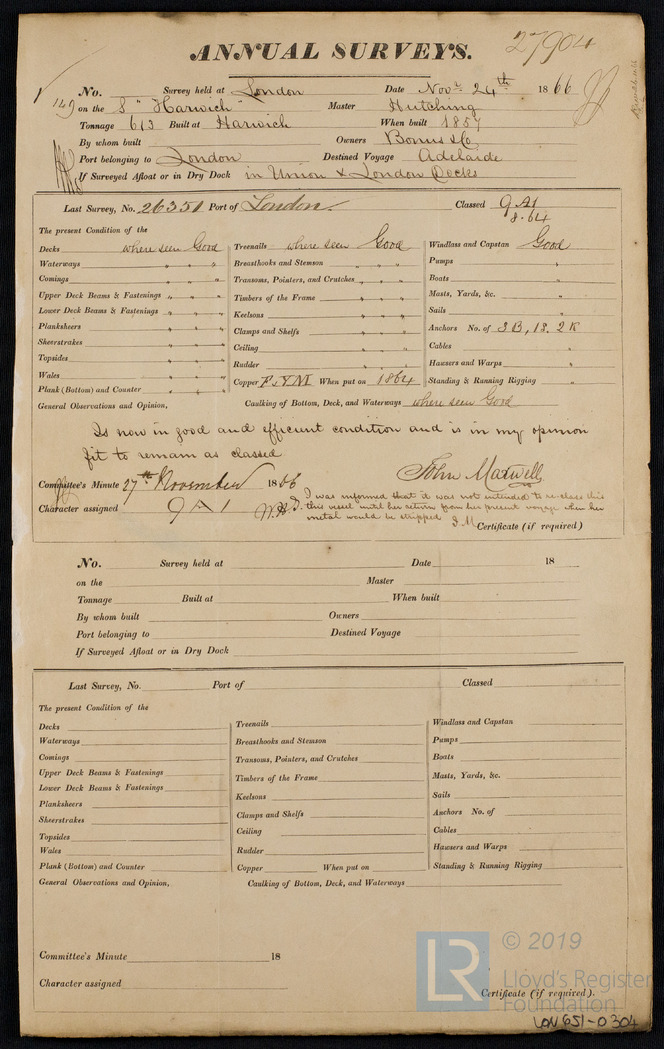 27904
ANNUAL SURVEYS.
No. Survey held at London Date Novr 24th 1866
149 on the S "Harwich" Master Hutching
Tonnage 613 Built at Harwich When built 1857
By whom built Owners Bonus & Co
Port belonging to London Destined Voyage Adelaide
If Surveyed Afloat or in Dry Dock in Union & London Docks
Last Survey, No. 26351 Port of London. Classed 9A1
8.64
The present Condition of the
Decks where seen Good
Waterways " " "
Comings " " "
Upper Deck Beams & Fastenings " " "
Lower Deck Beams & Fastenings " " "
Planksheers " " "
Sheerstrakes " " "
Topsides " " "
Wales " " "
Plank (Bottom) and Counter " " "
Treenails where seen Good
Breasthooks and Stemson " " "
Transoms, Pointers, and Crutches " " "
Timbers of the Frame " " "
Keelsons " " "
Clamps and Shelfs " " "
Ceiling " " "
Rudder " " "
Copper F.YM When put on 1864
Windlass and Capstan Good
Pumps "
Boats "
Masts, Yards, &c. "
Sails "
Anchors No. of 3B, 1S. 2K
Cables "
Hawsers and Warps "
Standing & Running Rigging "
General Observations and Opinion, Caulking of Bottom, Deck, and Waterways where seen Good
Is now in good and efficient condition and is in my opinion
fit to remain as classed
John Maxwell
Committee's Minute 27th November 1866
Character assigned 9A1
I was informed that it was not intended to reclass this
this vessel until her return from her present voyage when her
metal would be stripped J.M
Certificate (if required)
No. Survey held at Date 18
on the Master
Tonnage Built at When built
By whom built Owners
Port belonging to Destined Voyage
If Surveyed Afloat or in Dry Dock
Last Survey, No. Port of Classed
The present Condition of the
Decks
Waterways
Comings
Upper Deck Beams & Fastenings
Lower Deck Beams & Fastenings
Planksheers
Sheerstrakes
Topsides
Wales
Plank (Bottom) and Counter
Treenails
Breasthooks and Stemson
Transoms, Pointers, and Crutches
Timbers of the Frame
Keelsons
Clamps and Shelfs
Ceiling
Rudder
Copper When put on
Windlass and Capstan
Pumps
Boats
Masts, Yards, &c.
Sails
Anchors No. of
Cables
Hawsers and Warps
Standing & Running Rigging
General Observations and Opinion, Caulking of Bottom, Deck, and Waterways
Committee's Minute 18
Character assigned
Certificate (if required).
LR © 2019
Lloyd's Register
Foundation
LON 651-0304